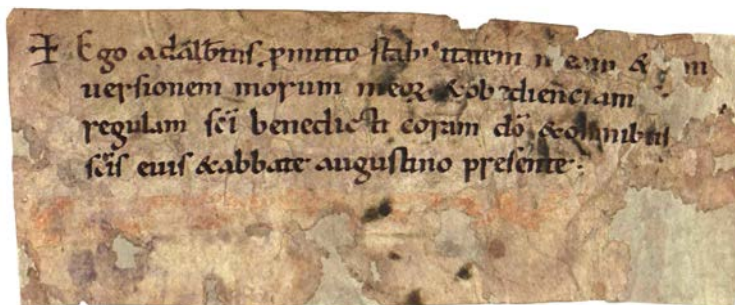 ✠ Ego adalb̅tus, p̲mitto stabilitatem meam & con
uersionem morum meoꝝ & obedienciam
regulam sc̅i benedicti coram do̅ & omnibus
sc̅is eius & abbate augustino presente: